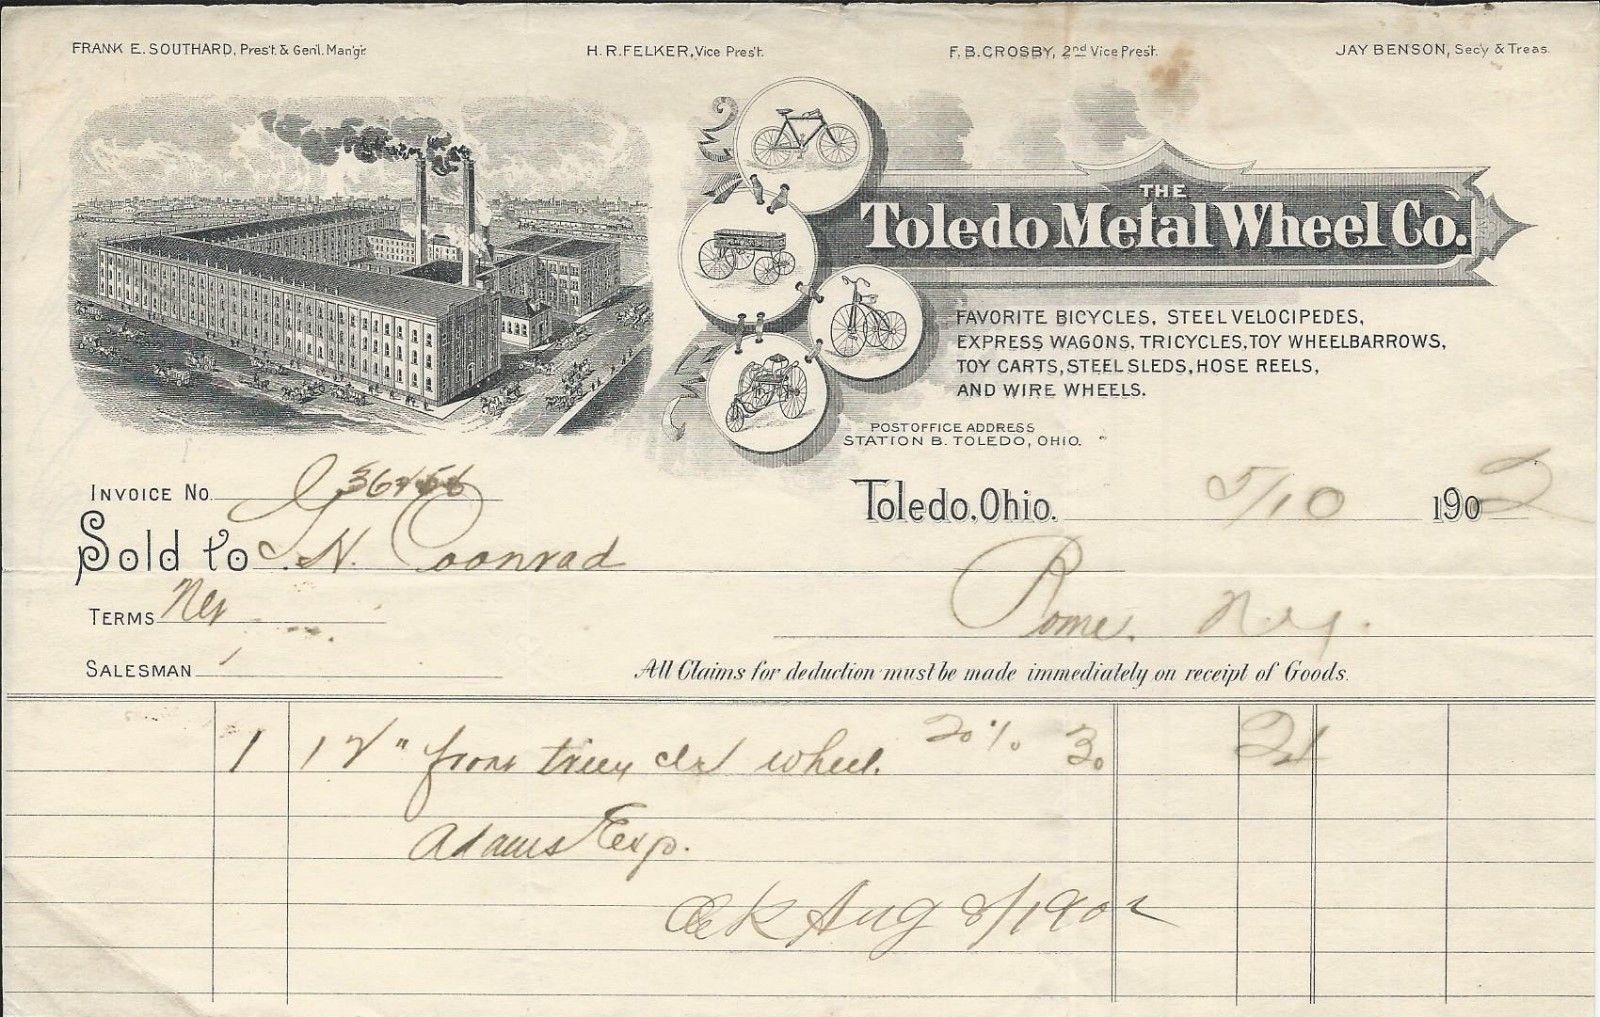 FRANK E. SOUTHARD, Pres't. & Gen'l. Man'g'r. H. R. FELKER, Vice Pres't. F. B. CROSBY, 2nd Vice Pres't. JAY BENSON, Sec'y & Treas.
THE
Toledo Metal Wheel Co.
FAVORITE BICYCLES, STEEL VELOCIPEDES,
EXPRESS WAGONS, TRICYCLES, TOY WHEELBARROWS,
TOY CARTS, STEEL SLEDS, HOSE REELS,
AND WIRE WHEELS.
POSTOFFICE ADDRESS
STATION B. TOLEDO, OHIO.
INVOICE NO.
Toledo, Ohio. 5/10 1902
Sold to N. Coonrad
TERMS Net Rome. N.Y.
SALESMAN 1
All Claims for deduction must be made immediately on receipt of Goods.
1 12" front wheel. 20% 30 24
Adams Exp.
OK Aug 8/1902